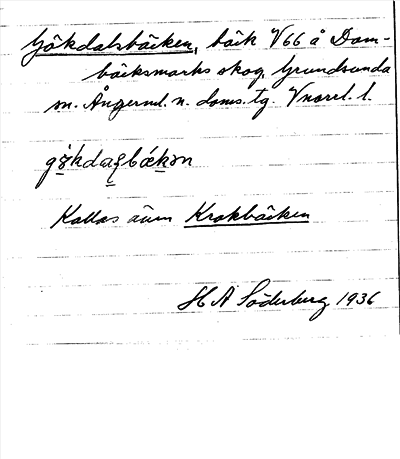 Gökdalsbäcken, bäck V66 å Dom-
bäcksmarks skog, Grundsunda
sn. Ångerml. n. doms. tg. Vnorrl. l.
Kallas även Krokbäcken
H A Söderberg 1936